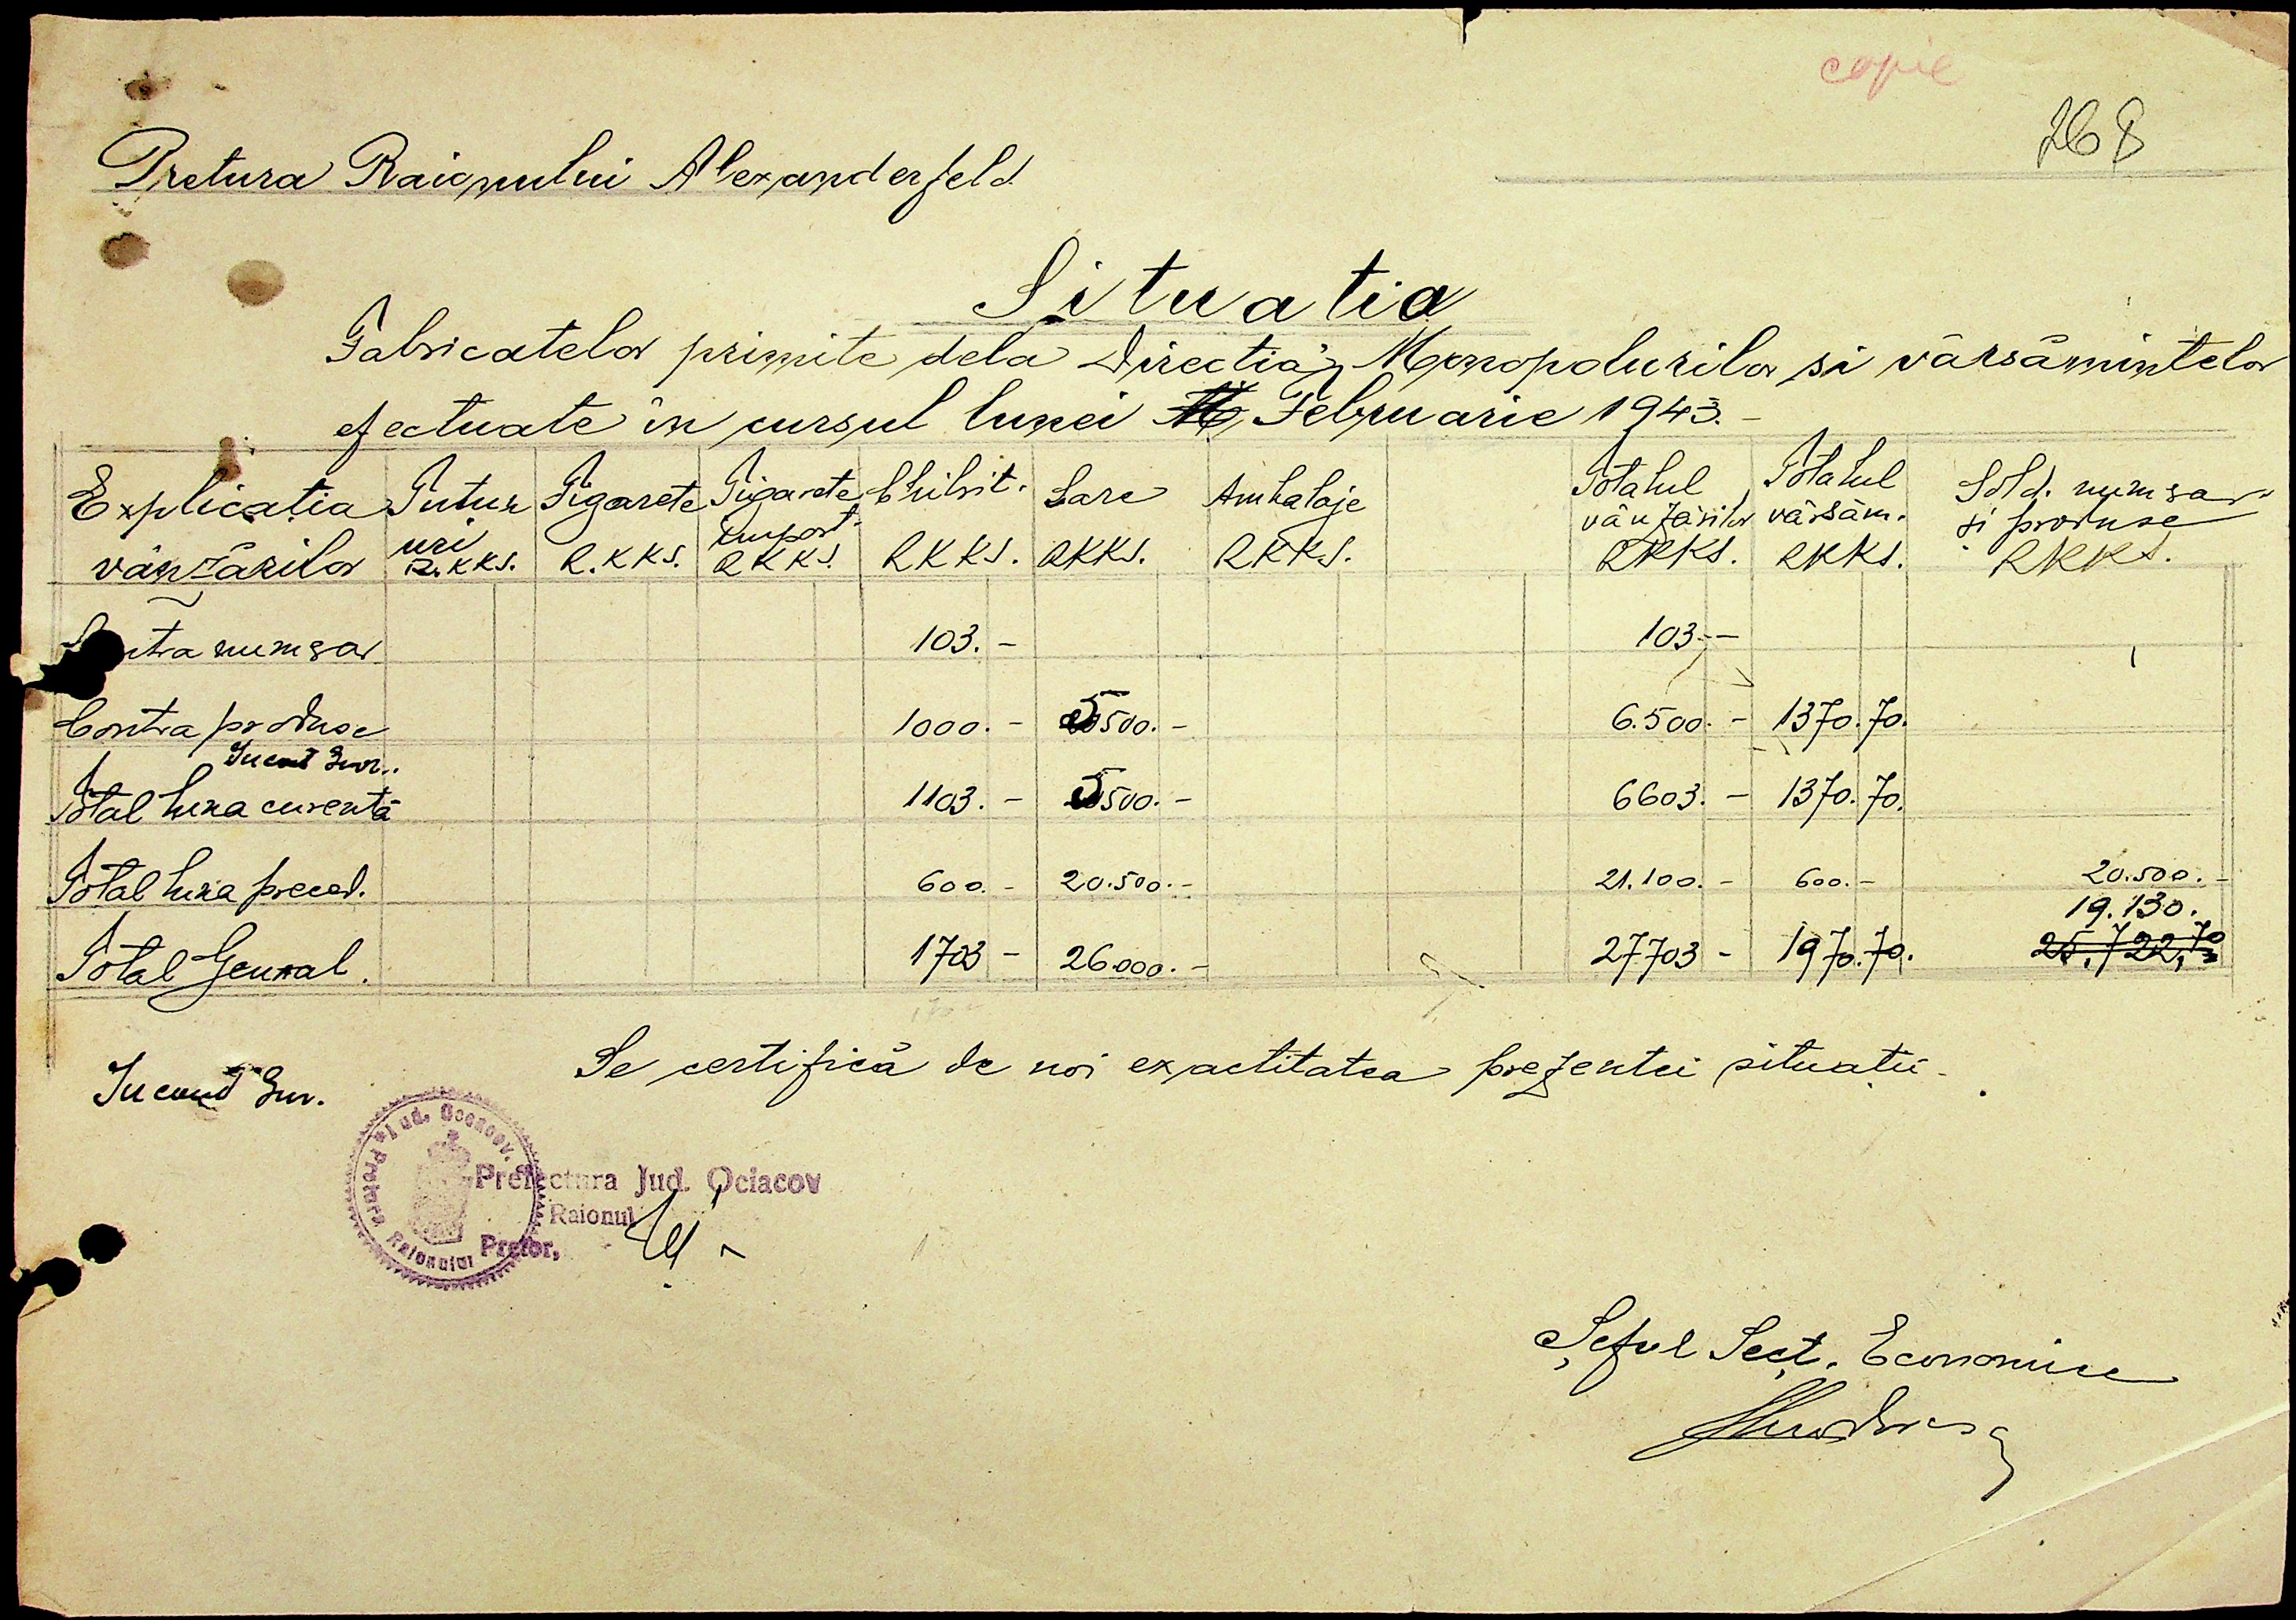 copie
268
Pretura Raionului Alexanderfeld
Situatia
Fabricatelor primite dela Directia Monopolurilor si vărsămintelor
efectuate in cursul lunei Februarie 1943.-
Explicatia vânzărilor | Tutunuri R.KKS. | Tigarete R.KKS. | Tigarete import. RKKS. | Chibrit. RKKS. | Sare RKKS. | Ambalaje RKKS. | Totalul vânzărilor RKKS. | Totalul vărsăm. RKKS. | Sold. numerar si produse RKKS.
ntra numerar 103.- 103.-
Contra produse 1000.- 5500.- 6.500.- 1370.70.
Total luna curentă 1103.- 5500.- 6603.- 1370.70.
Total luna preced. 600.- 20.500.- 21.100.- 600.- 20.500.-
19.130.
Total General. 1703- 26.000.- 27703- 1970.70. 25.722,70
Se certifică de noi exactitatea prezentei situatii.
Jud. Oceacov.
Pretura Raionului
Prefectura Jud. Ociacov
Raionul
Pretor,
Șeful Secț. Economice